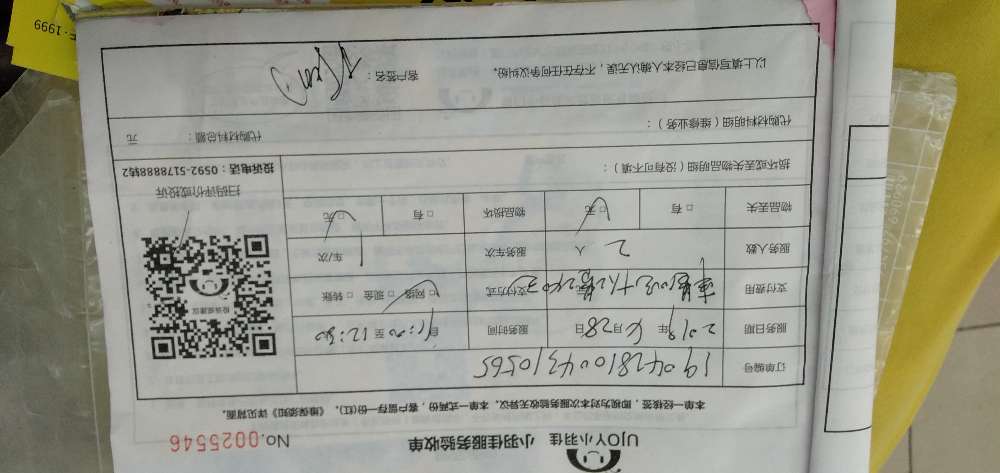 UJOY小羽佳 小羽佳服务验收单 No.0025546
本单一经核签，即视为对本次服务验收无异议。本单一式两份，客户留存一份（红），《维保须知》详见背面。
订单编号 1904281004310565
服务日期 2019年4月28日 服务时间 自 至12:30
支付费用 支付方式 □网络 □现金 □转账
服务人数 2 人 服务车次 1 车/次
物品丢失 □有 □无 物品损坏 □有 □无
扫码评价或投诉
投诉电话：0592-5178888转2
损坏或丢失物品明细（没有可不填）：
代购材料明细（维修业务）： 代购材料总额： 元
以上填写信息已经本人确认无误，不存在任何争议纠纷。 客户签名：
E·1999